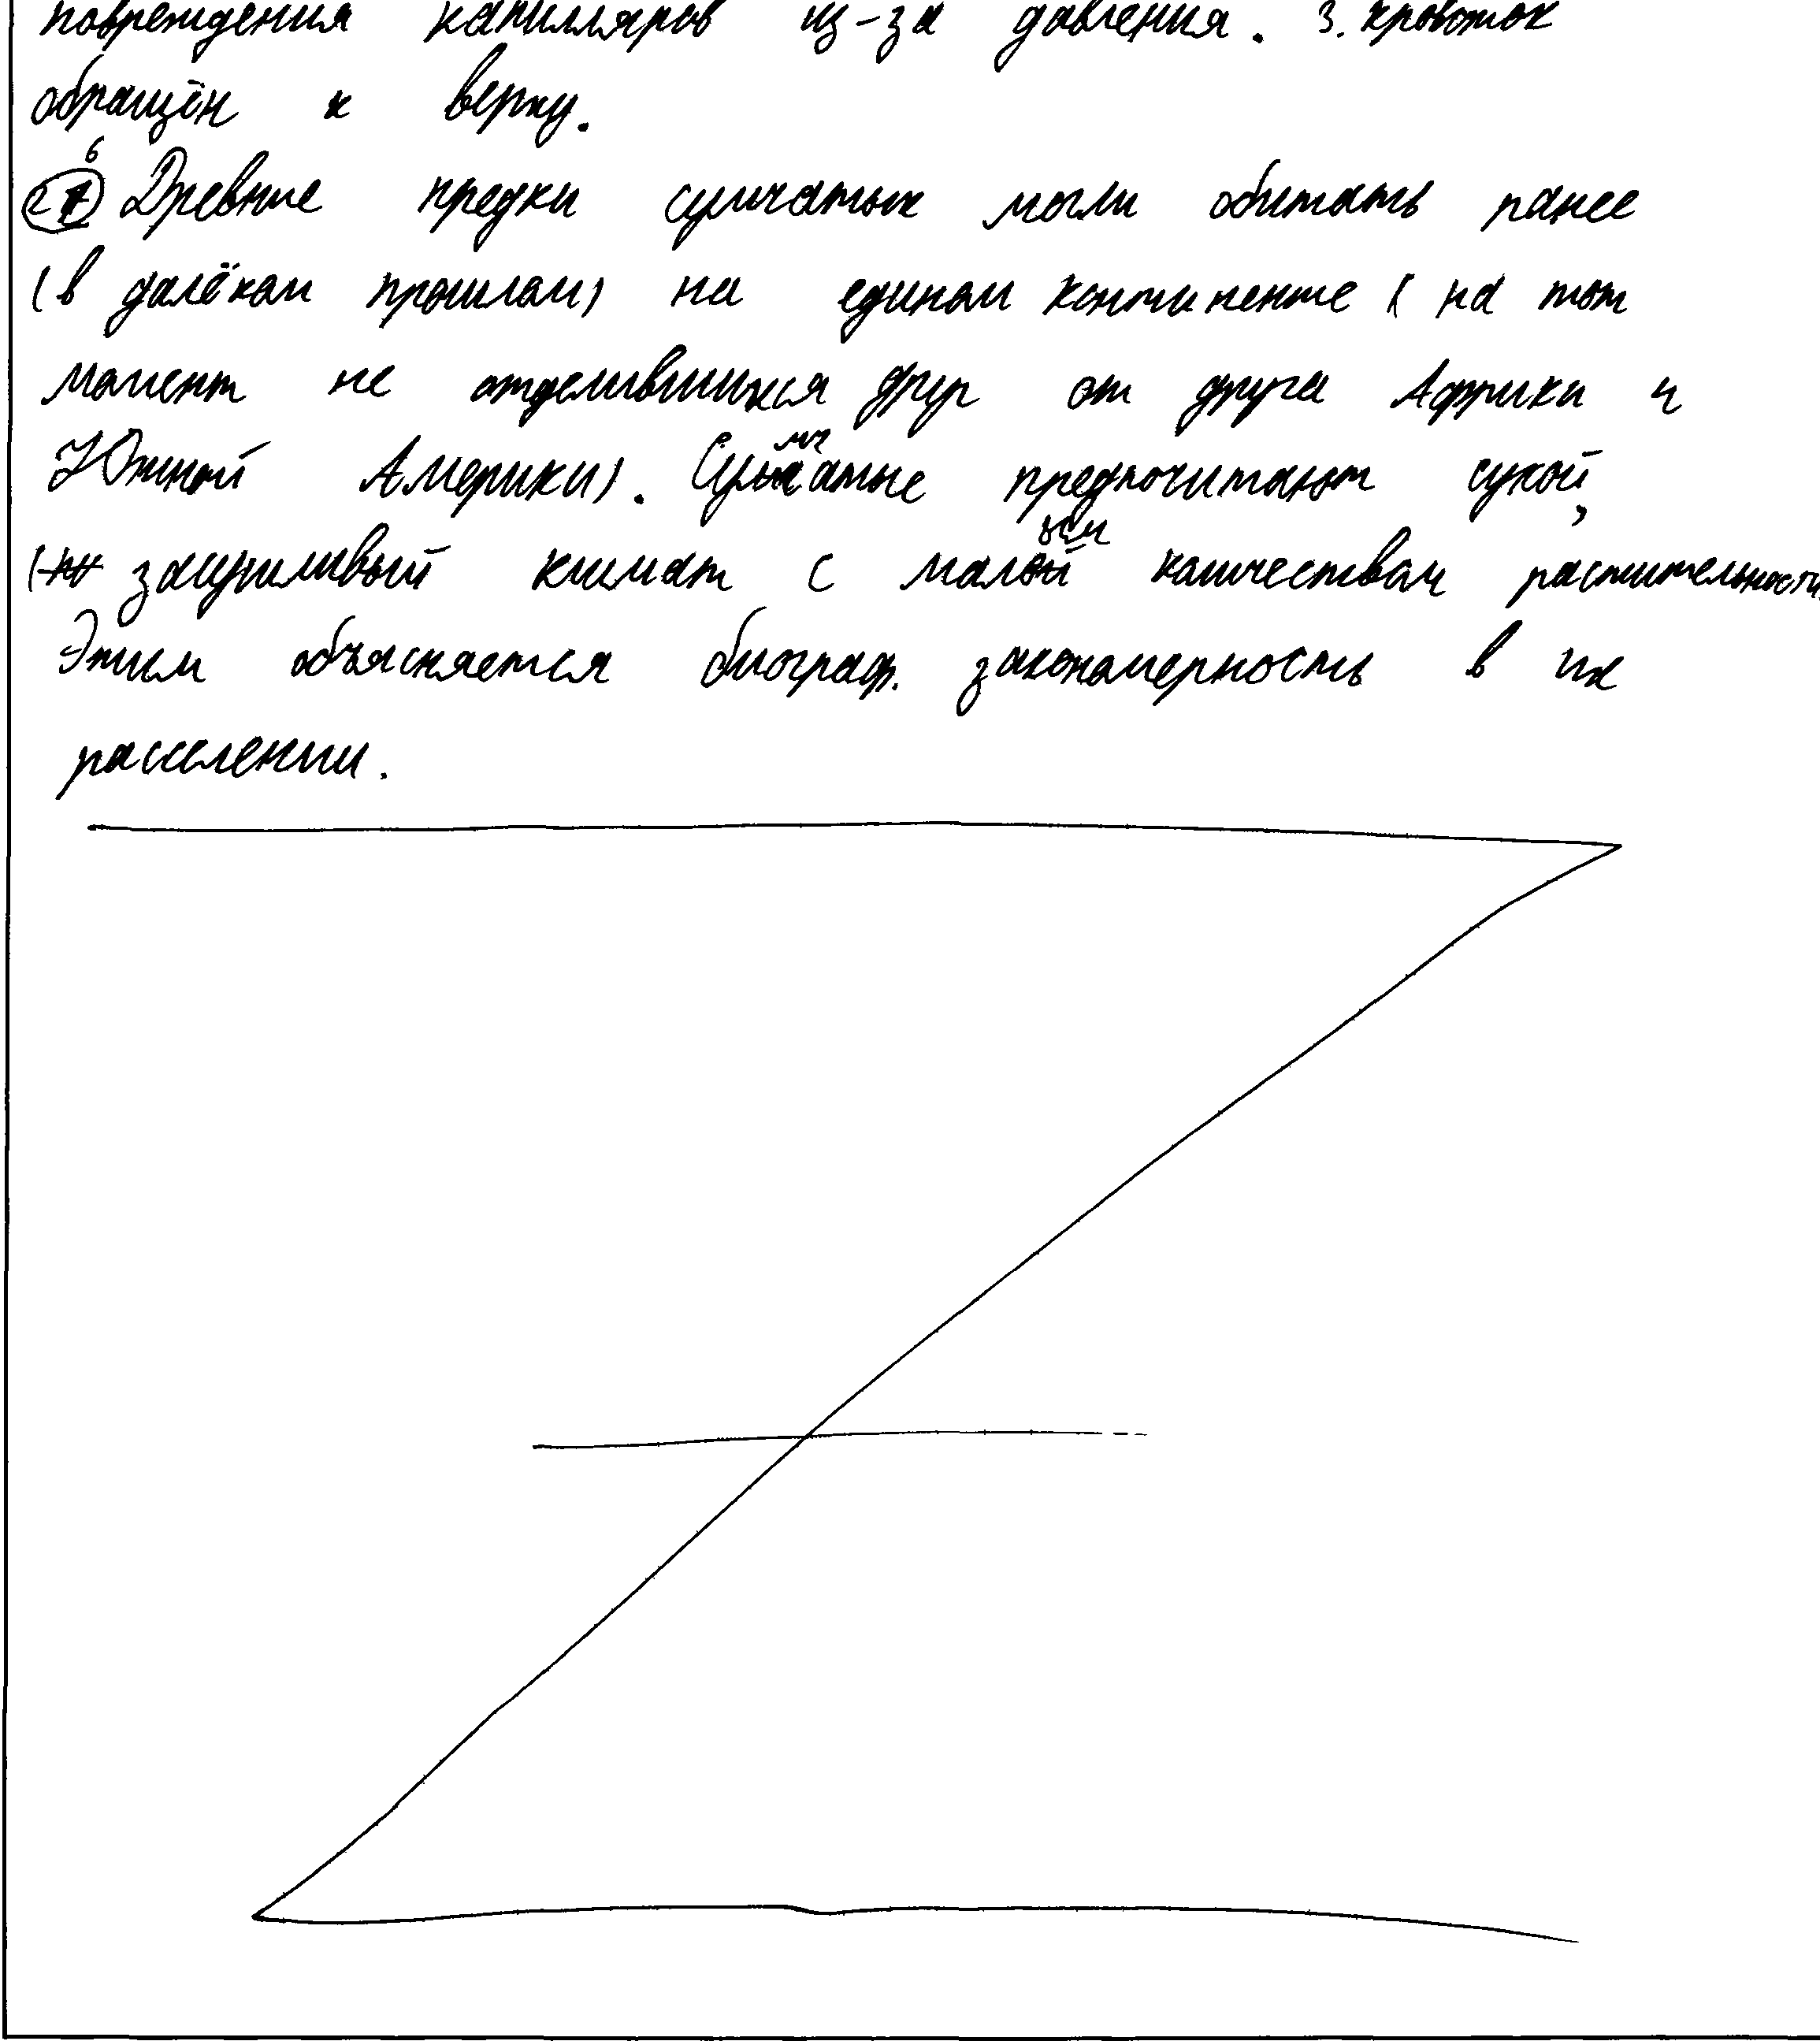 повреждения капилляров из-за давления. 3. кровоток
обращён к верху.
26 Древние предки сумчатых могли обитать ранее
(в далёком прошлом) на едином континенте (на тот
момент не отделившихся друг от друга Африки и
Южной Америки). Сумчатые предпочитают сухой,
засушливый климат с малым количеством растительности.
Этим объясняется биограф. закономерность в их
расселении.